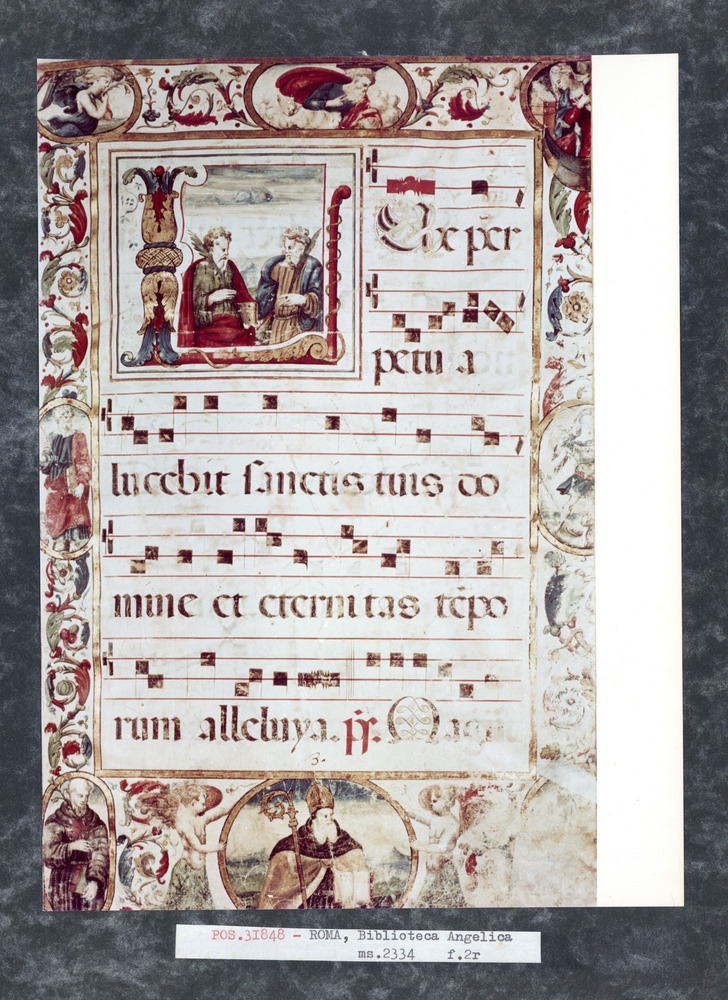 Lux per
petu a
lucebit sanctis tuis do
mine et eternitas tẽpo
rum alleluya. p̃s. Magni
3.
POS.31848 - ROMA, Biblioteca Angelica
ms.2334 f.2r